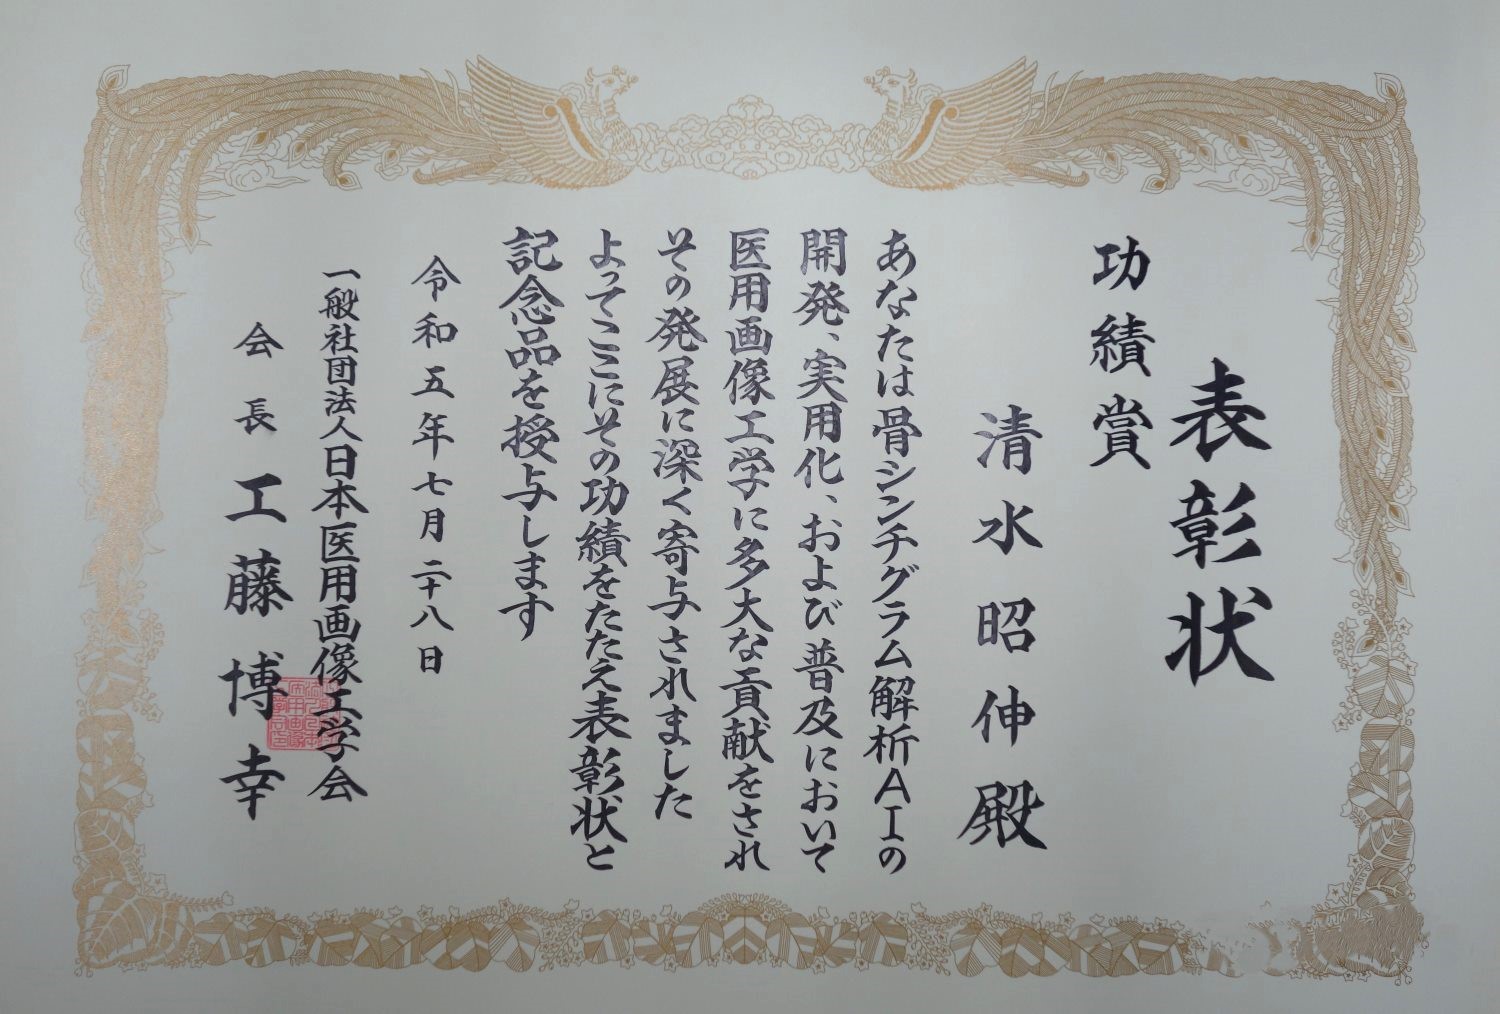 表彰状
功績賞
清水昭伸殿
あなたは骨シンチグラム解析AIの
開発、実用化、および普及において
医用画像工学に多大な貢献をされ
その発展に深く寄与されました
よってここにその功績をたたえ表彰状と
記念品を授与します
令和五年七月二十八日
一般社団法人日本医用画像工学会
会長 工藤博幸